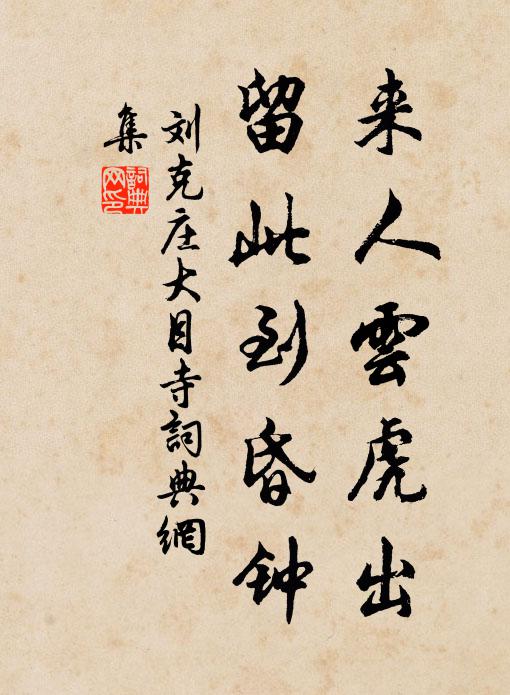 来人雲虎出
留此到昏钟
刘克庄大目寺詞典網
集
詞典
网印